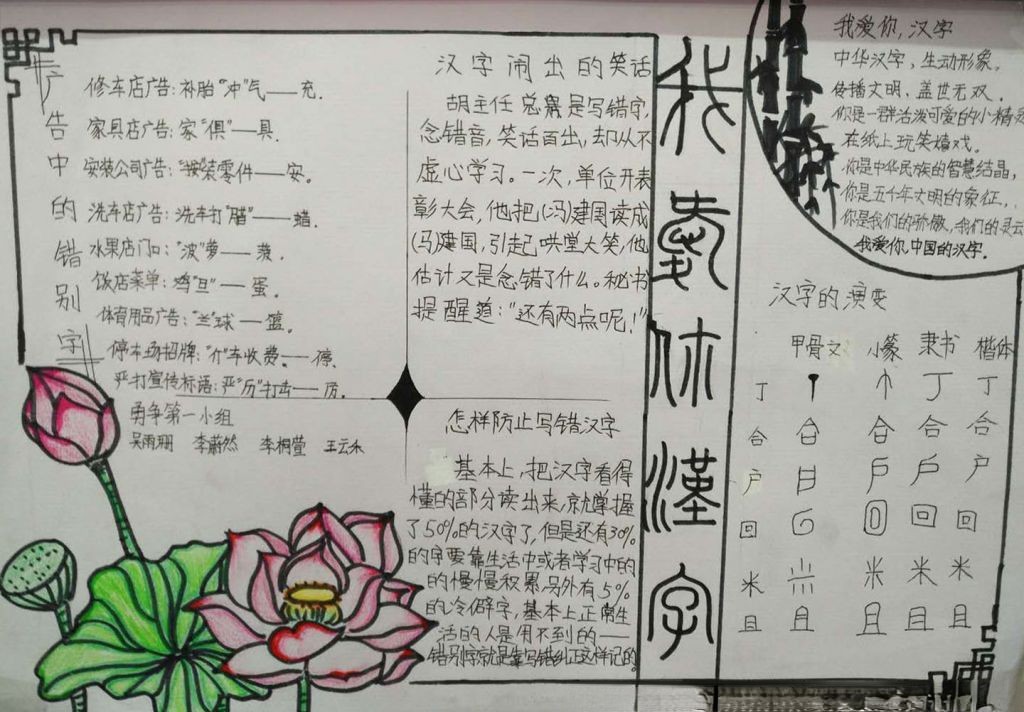 广告中的错别字
修车店广告:补胎"冲"气——充.
家具店广告:家"俱"——具.
安装公司广告:"按"装零件——安.
洗车店广告:洗车打"腊"——蜡.
水果店门口:"波"萝——菠.
饭店菜单:鸡"旦"——蛋.
体育用品广告:"兰"球——篮.
停车场招牌:"仃"车收费——停.
严打宣传标语:严"历"打击——厉.
勇争第一小组
吴雨珊 李蔚然 李桐萱 王云禾
汉字闹出的笑话
胡主任总是写错字,
念错音,笑话百出,却从不
虚心学习。一次,单位开表
彰大会,他把(冯)建国读成
(马)建国,引起哄堂大笑,他
估计又是念错了什么。秘书
提醒道:"还有两点呢!"
怎样防止写错汉字
基本上,把汉字看得
懂的部分读出来,就掌握
了50%的汉字了,但是还有30%
的字要靠生活中或者学习中的
的慢慢积累,另外有5%
的冷僻字,基本上正常生
活的人是用不到的——
错别字就是靠写错纠正这样记的
我爱你漢字
我爱你,汉字
中华汉字,生动形象。
传播文明,盖世无双。
你是一群活泼可爱的小精灵
在纸上玩笑嬉戏。
你是中华民族的智慧结晶,
你是五千年文明的象征,
你是我们的骄傲,我们的灵云
我爱你,中国的汉字.
汉字的演变
甲骨文 小篆 隶书 楷体
丁 丁 丁
合 合 合 合 合
户 户 户 户
回 回 回 回
米 米 米 米
且 且 且 且 且